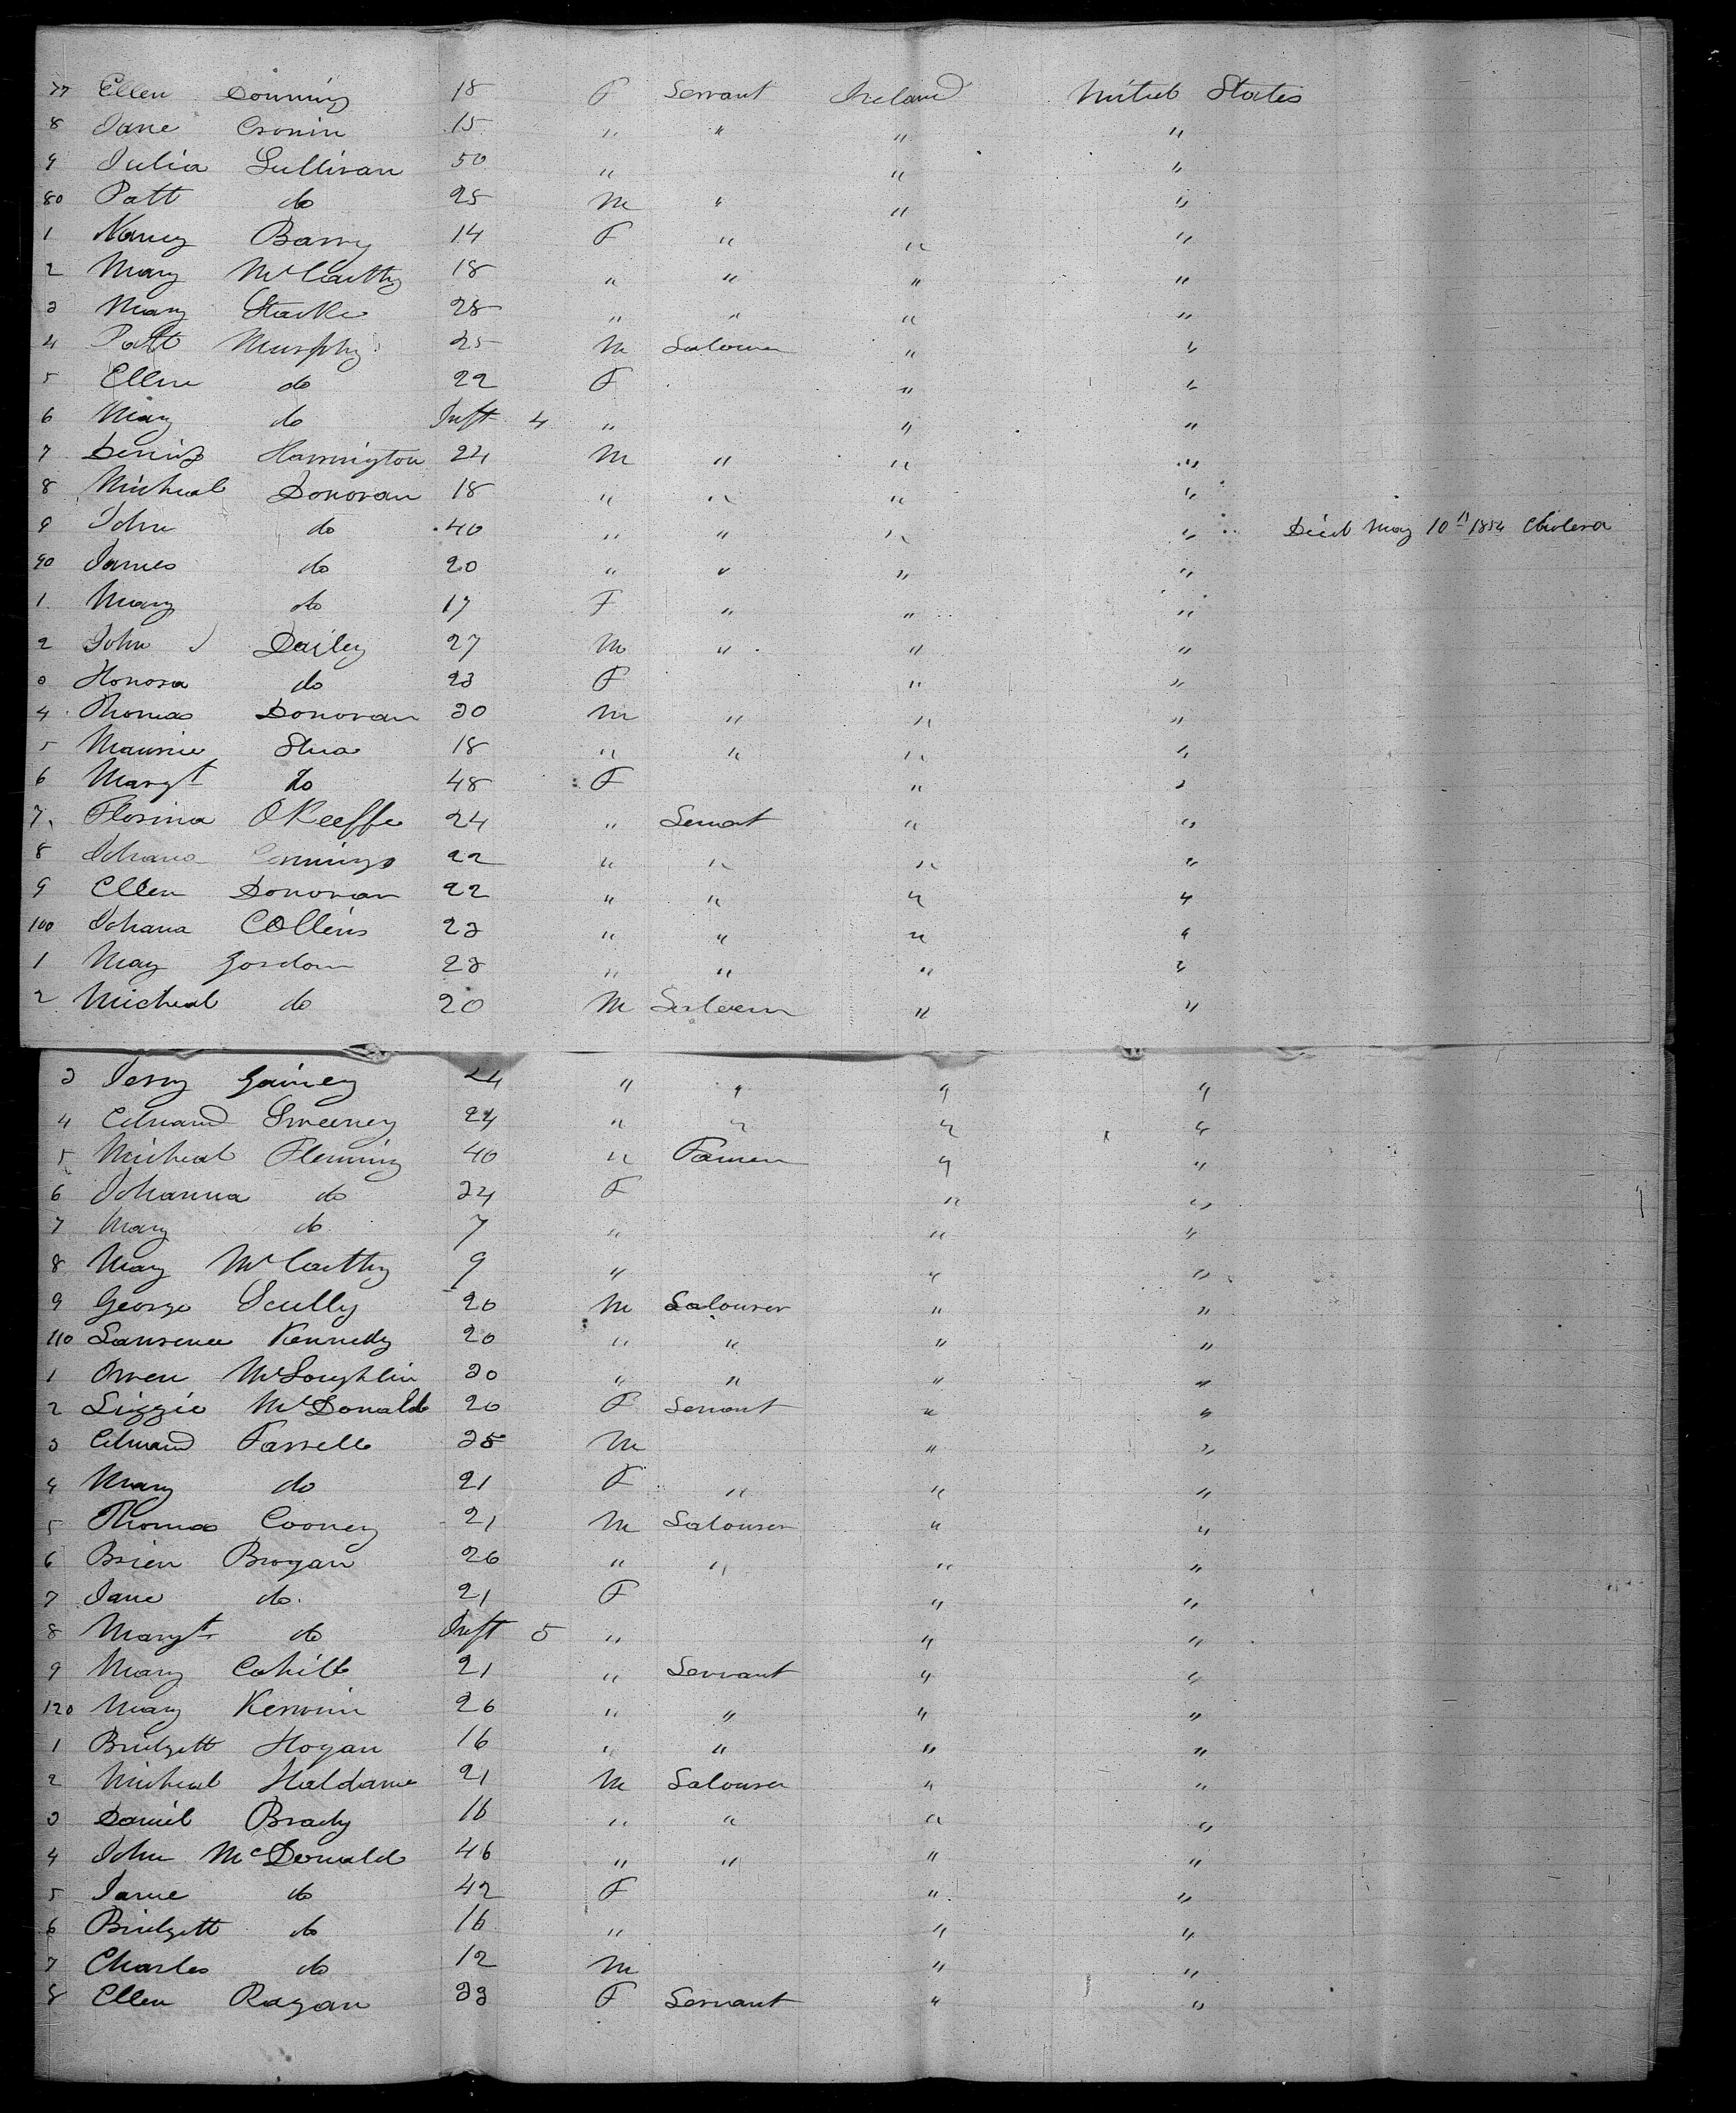 77 Ellen Downing 18 F Servant Ireland United States
8 Jane Cronin 15 " " " "
9 Julia Sullivan 50 " " "
80 Patt do 25 M " " "
1 Nancy Barry 14 F " " "
2 Mary McCarthy 18 " " " "
3 Mary Starke 28 " " " "
4 Patt Murphy 25 M Labourer " "
5 Ellen do 22 F " "
6 Mary do Inft 4 " " "
7 Dennis Harrington 24 M " " "
8 Micheal Donovan 18 " " " "
9 John do 40 " " " " Died May 10th 1854 Cholera
90 James do 20 " " " "
1 Mary do 17 F " " "
2 John J Dailey 27 M " " "
3 Honora do 23 F " "
4 Thomas Donovan 30 M " " "
5 Maurice Shea 18 " " " "
6 Margt do 48 F " "
7 Florina OKeeffe 24 " Servant " "
8 Johana 22 " " " "
9 Ellen Donovan 22 " " " "
100 Johana Collins 23 " " " "
1 May Gordon 23 " " " "
2 Micheal do 20 M Labourer " "
3 Jerry Gainey 24 " " " "
4 Edward Sweeney 24 " " " "
5 Micheal Fleming 40 " Farmer " "
6 Johanna do 34 F " "
7 Mary do 7 " " "
8 May McCarthy 9 " " "
9 George Scully 20 M Labourer " "
110 Laurence Kennedy 20 " " " "
1 Owen McLoughlin 30 " " " "
2 Lizzie McDonald 20 F Servant " "
3 Edward Farrell 25 M " "
4 Mary do 21 F " " "
5 Thomas Cooney 21 M Labourer " "
6 Brien Brogan 26 " " " "
7 Jane do 21 F " "
8 Margt do Inft 5 " " "
9 Mary Cahill 21 " Servant " "
120 Mary Kerwin 26 " " " "
1 Bridgett Hogan 16 " " " "
2 Micheal Haldane 21 M Labourer " "
3 Daniel Brady 16 " " " "
4 John McDonald 46 " " " "
5 Jane do 42 F " "
6 Bridgett do 16 " " "
7 Charles do 12 M " "
8 Ellen Ragan 33 F Servant " "